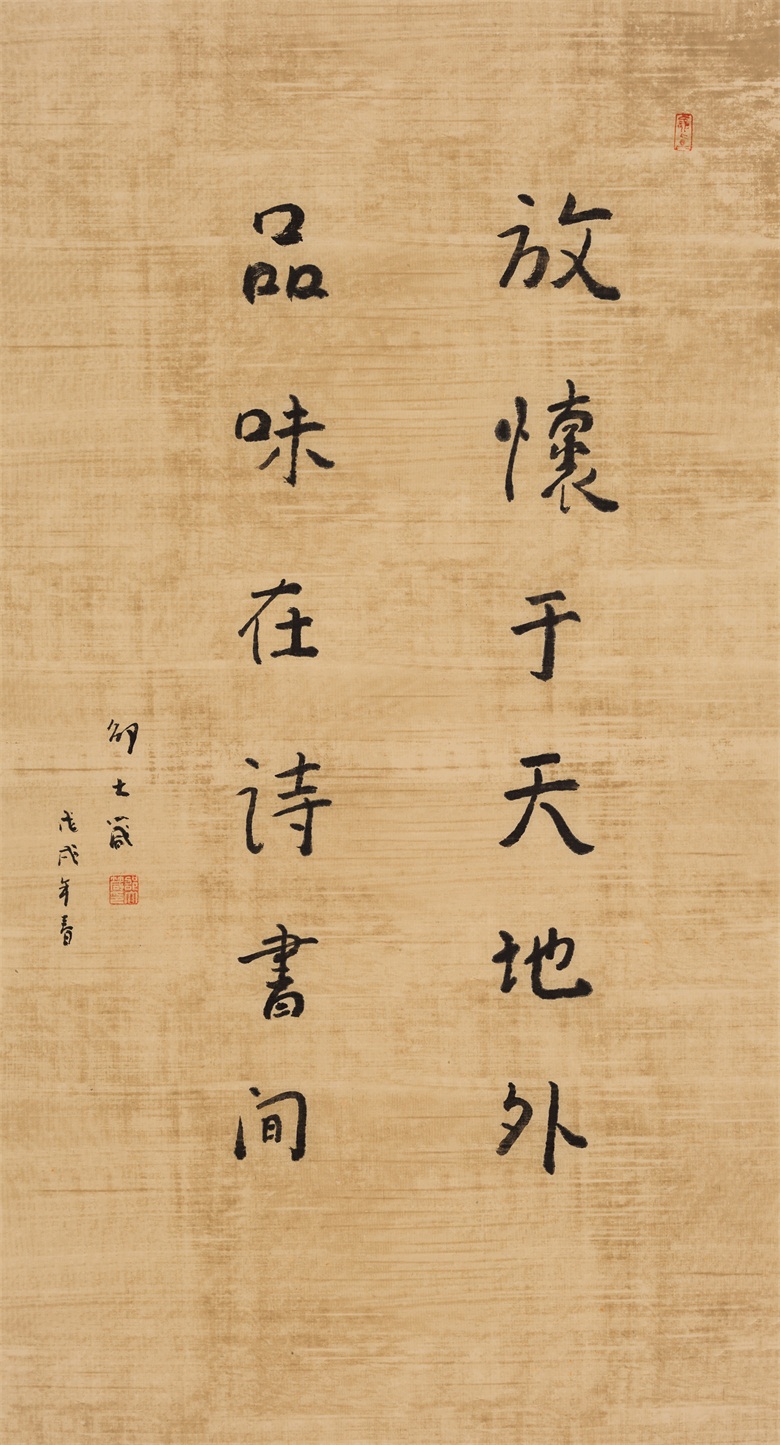 放懷于天地外
品味在诗書间
邵士箴
戊戌年春